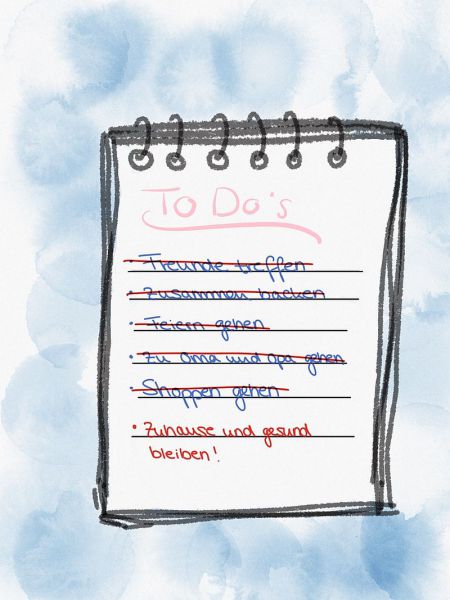 To Do's
• Freunde treffen
• Zusammen backen
• Feiern gehen
• Zu Oma und Opa gehen
• Shoppen gehen
• Zuhause und gesund
bleiben!